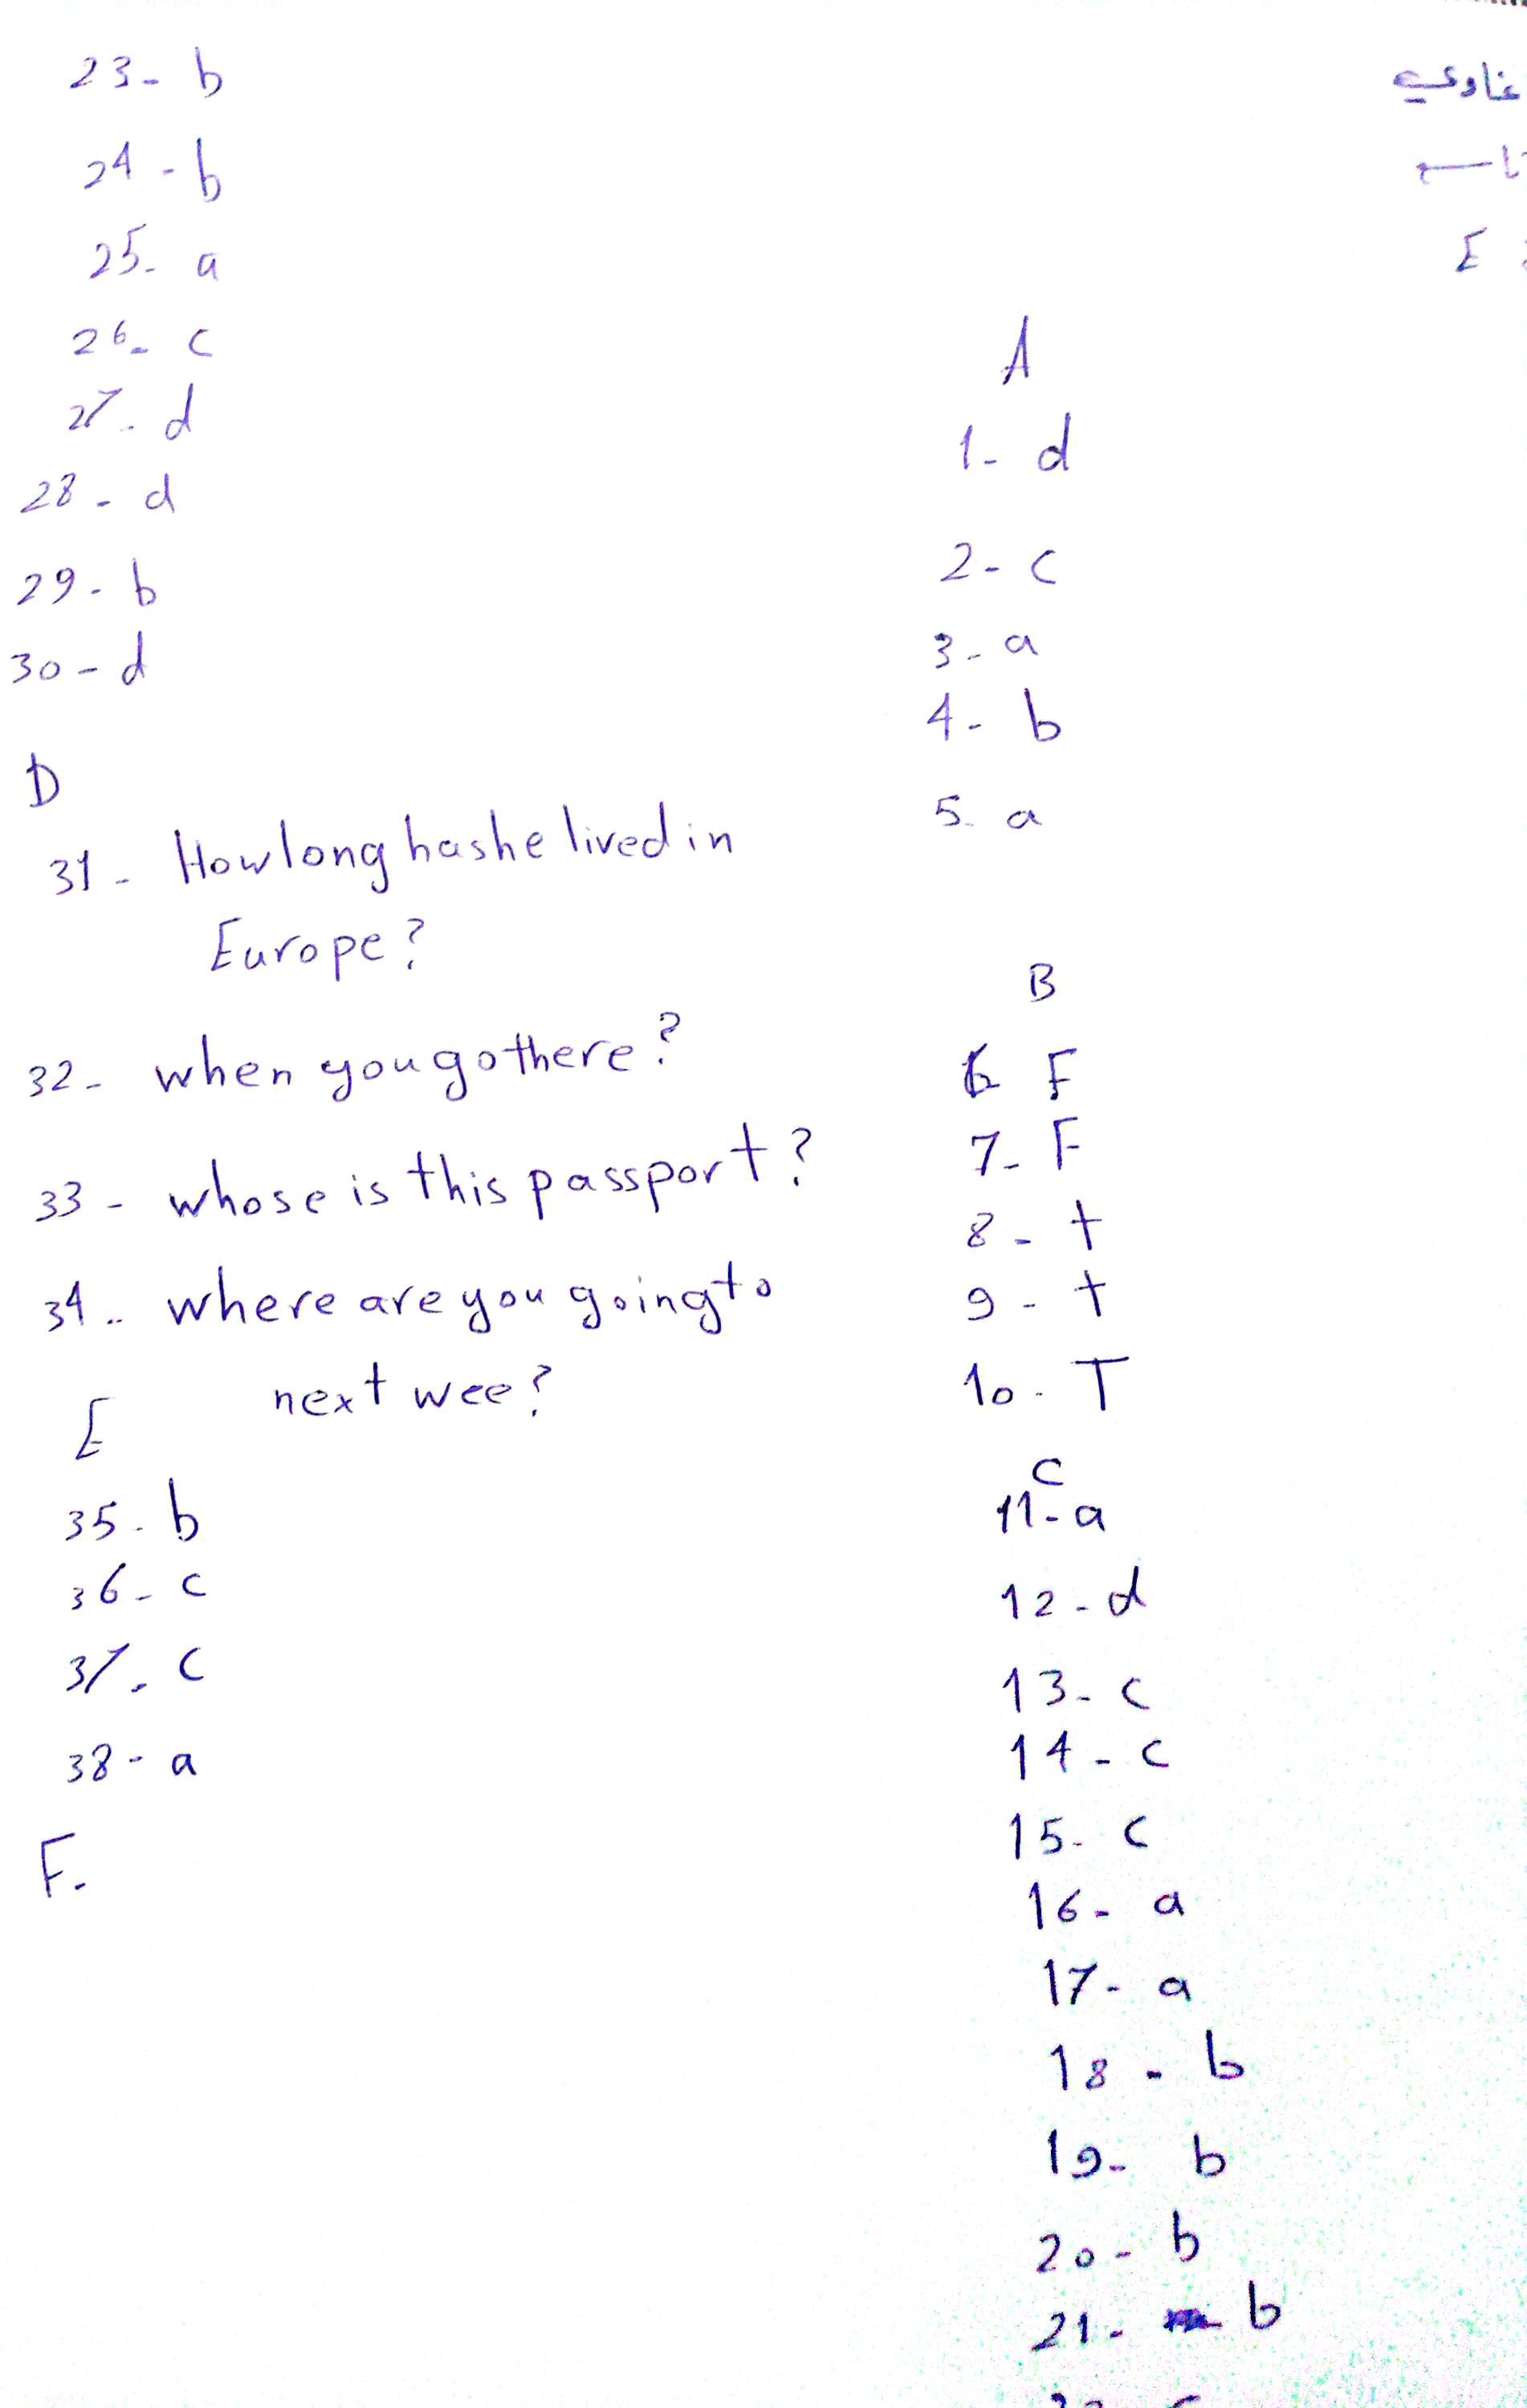 تاسع
E
A
1- d
2- c
3- a
4- b
5- a
B
6 F
7- F
8- t
9- t
10- T
C
11- a
12- d
13- c
14- c
15- c
16- a
17- a
18- b
19- b
20- b
21- b
23- b
24- b
25- a
26- c
27- d
28- d
29- b
30- d
D
31- How long has he lived in
Europe?
32- when you go there?
33- whose is this passport?
34- where are you going to
next wee?
E
35- b
36- c
37- c
38- a
F.